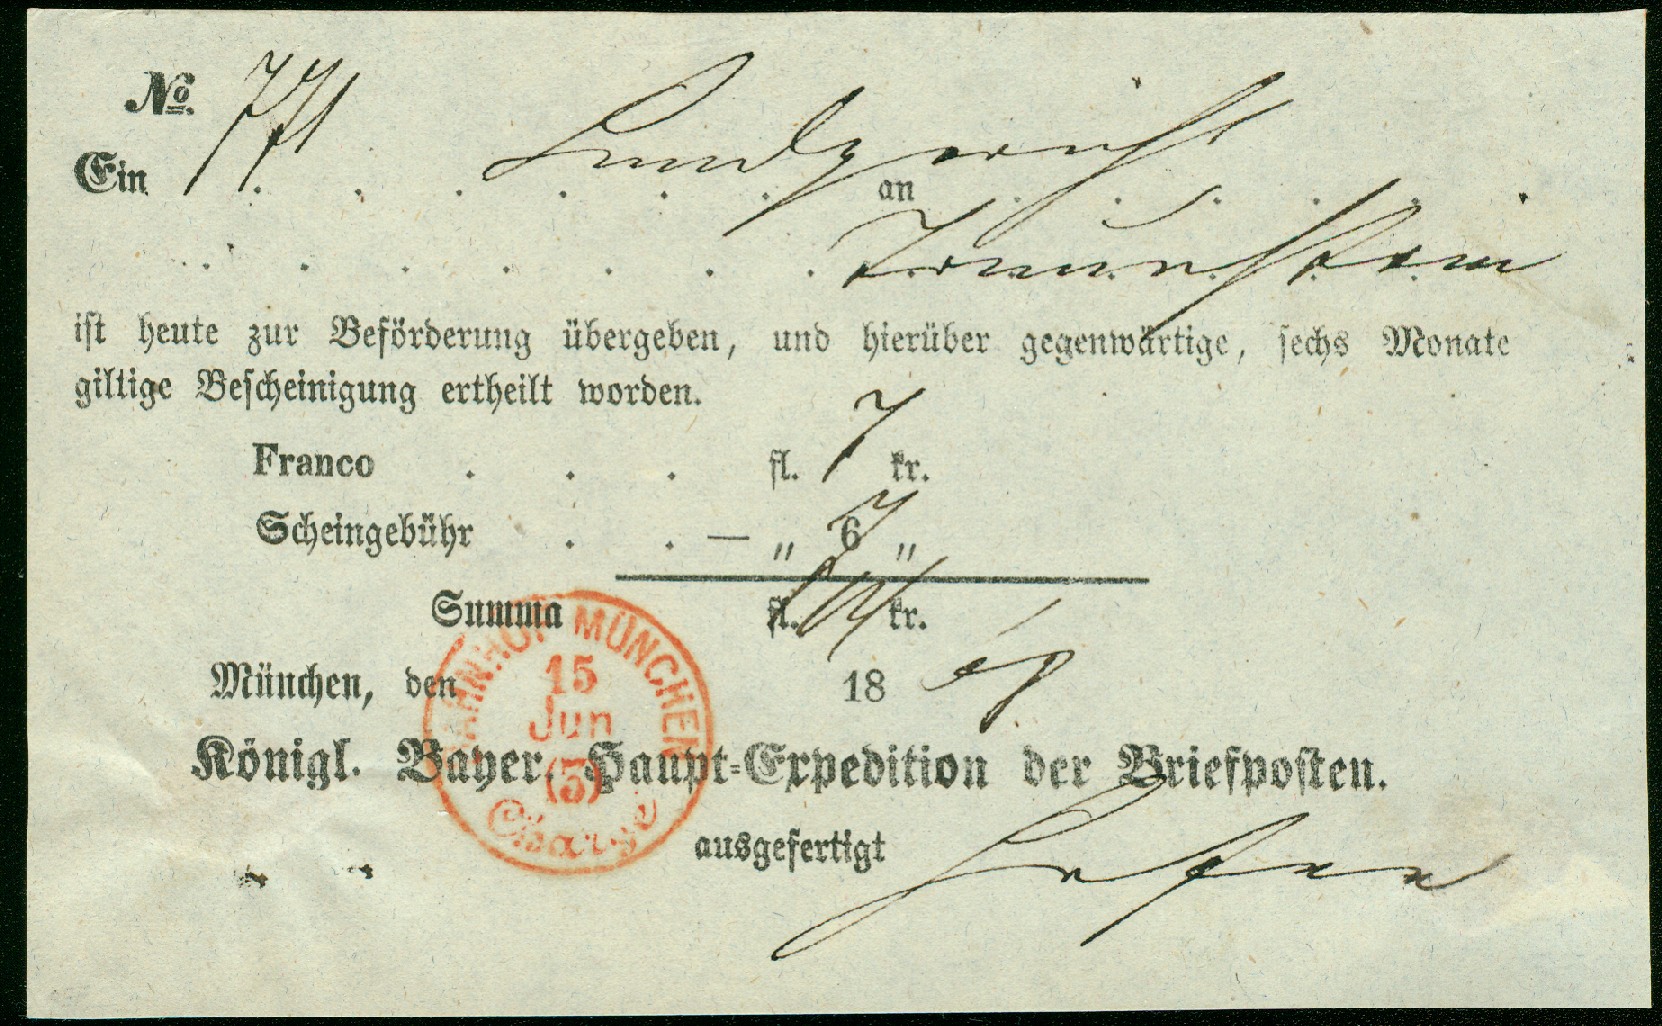 No. 771
Landgericht
Ein . . . . . . an . . . . . .
Traunstein
ist heute zur Beförderung übergeben, und hierüber gegenwärtige, sechs Monate
giltige Bescheinigung ertheilt worden.
Franco . . . fl. 7 kr.
Scheingebühr . . — „ 6 7 „
Summa fl. 14 kr.
München, den 18
Königl. Bayer. Haupt-Expedition der Briefposten.
ausgefertigt
BAHNHOF MÜNCHEN
15
Jun
(5)
Chargé